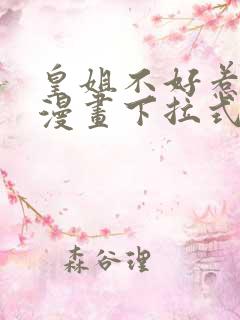 皇姐不好惹
漫畫下拉式
森谷理